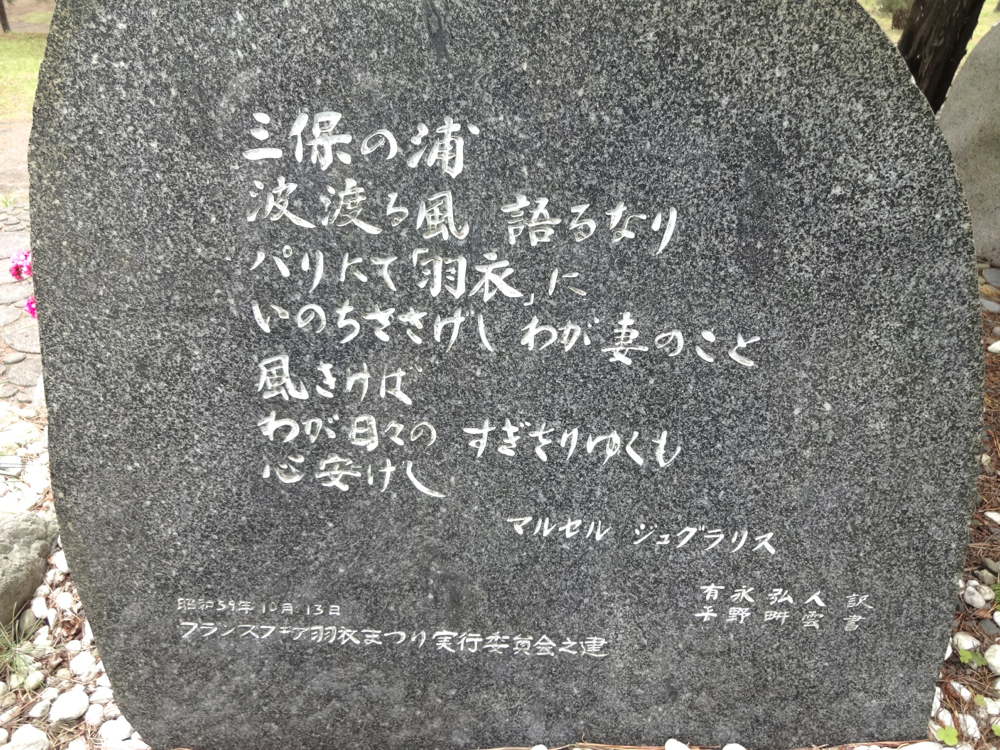 三保の浦
波渡る風 語るなり
パリにて「羽衣」に
いのちささげし わが妻のこと
風きけば
わが日々の すぎさりゆくも
心安けし
マルセル ジュグラリス
有永弘人 訳
平野 畊雲 書
昭和59年10月13日
フランスフェア羽衣まつり実行委員会之建